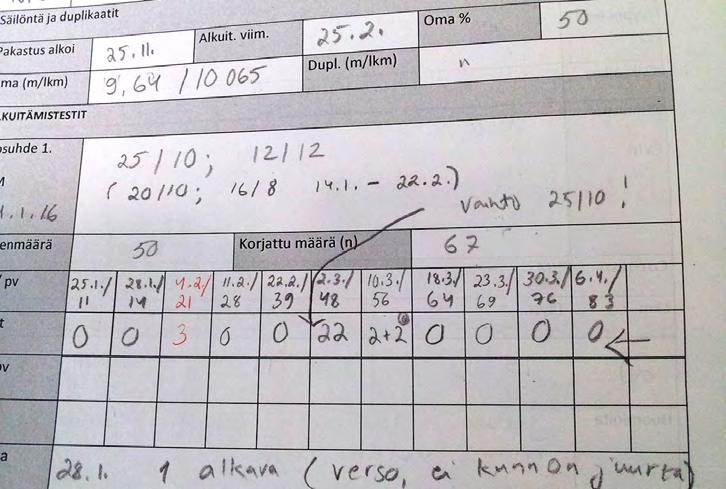 Säilöntä ja duplikaatit
Pakastus alkoi 25.11. Alkuit. viim. 25.2. Oma % 50
ma (m/lkm) 9,64 / 10 065 Dupl. (m/lkm) n
KUITÄMISTESTIT
suhde 1. 25/10; 12/12
(20/10; 16/8 14.1. - 22.2.)
.1.16 vaihto 25/10!
enmäärä 50 Korjattu määrä (n) 67
pv 25.1./ 28.1./ 4.2/ 11.2./ 22.2./ 2.3./ 10.3./ 18.3/ 23.3/ 30.3./ 6.4./
11 14 21 28 39 48 56 64 69 76 83
t 0 0 3 0 0 22 2+2 0 0 0 0
v
a 28.1. 1 alkava (verso, ei kunnon juurta)